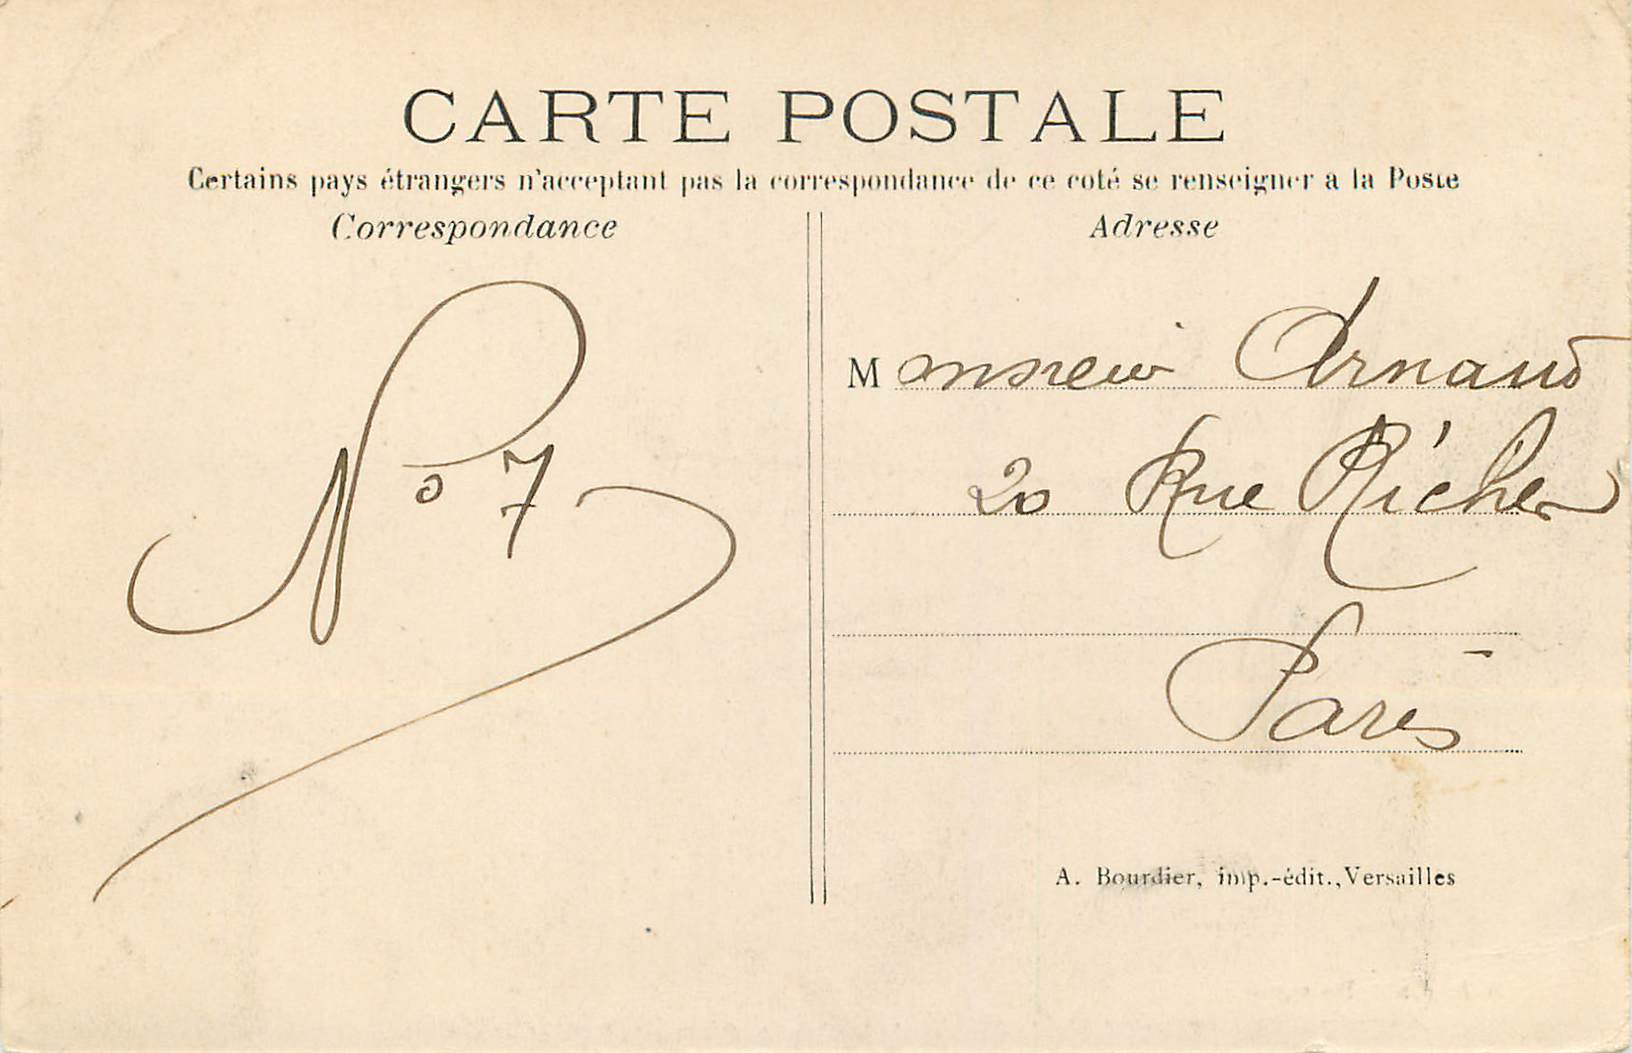 CARTE POSTALE
Certains pays étrangers n'acceptant pas la correspondance de ce coté se renseigner a la Poste
Correspondance
Adresse
No 7
Monsieur Arnaud
20 Rue Richer
Paris
A. Bourdier, imp.-édit., Versailles